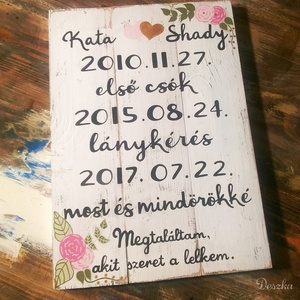 Kata Shady
2010.11.27.
első csók
2015.08.24.
lánykérés
2017.07.22.
most és mindörökké
Megtaláltam,
akit szeret a lelkem.
Deszka